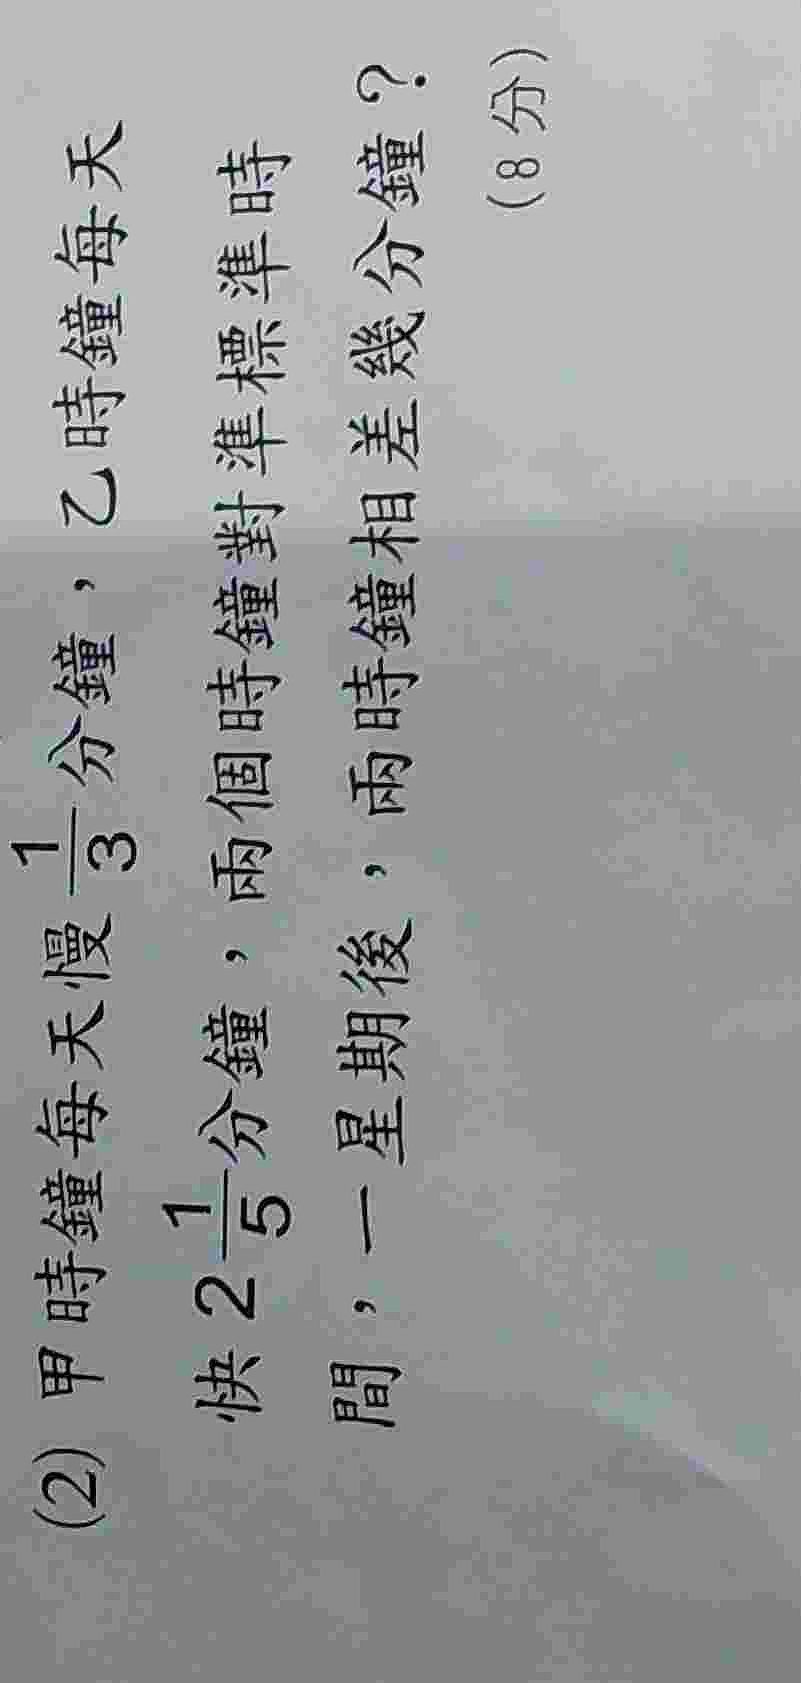 (2) 甲時鐘每天慢1/3分鐘，乙時鐘每天
快2 1/5分鐘，兩個時鐘對準標準時
間，一星期後，兩時鐘相差幾分鐘？
(8分)